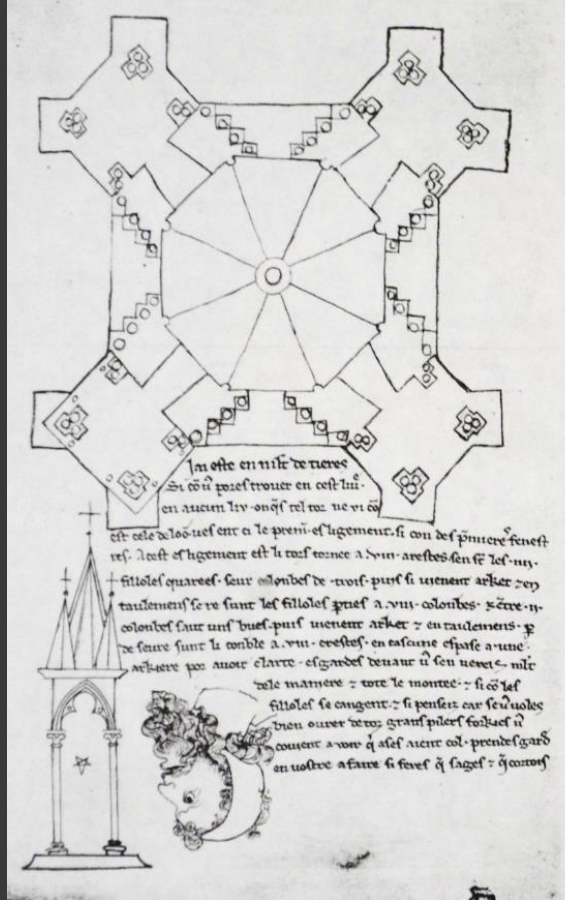 J'ai este en mlt de tieres
Si cō u' pores trover en cest liv'.
en aucun liv. onq̄s tel tor ne vi cō
est cele de loō. ves ent ci le premi. esligement. si con des p'mieres fenest
res. A cest esligement est li tors tornee a .viii. arestes. sen st' les .iiii.
filloles quarees. seur colonbes de .trois. puis si vienent arket ⁊ en
taulemens se re sunt les filloles p'ties a .viii. colonbes. ⁊ entre .ii.
colonbes saut uns bues. puis vienent arket ⁊ entaulemens. p'
de seure sunt li conble a .viii. crestes. en cascune espase a .une.
arkiere por avoir clarte. esgardes devant u' sen veres. mlt
dele maniere ⁊ tote le montee. ⁊ si cō les
filloles se cangent. ⁊ si penseiz car se u' voles
bien ovrer de toz grans pilers forkies u'
covient avoir q̄ ases aient col. prendes gard
en vostre afaire si feres q̄ sages ⁊ q̄ cortois